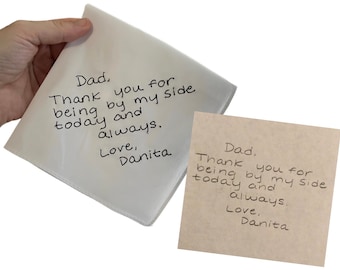 Dad,
Thank you for
being by my side
today and
always.
Love,
Danita
Dad,
Thank you for
being by my side
today and
always.
Love,
Danita